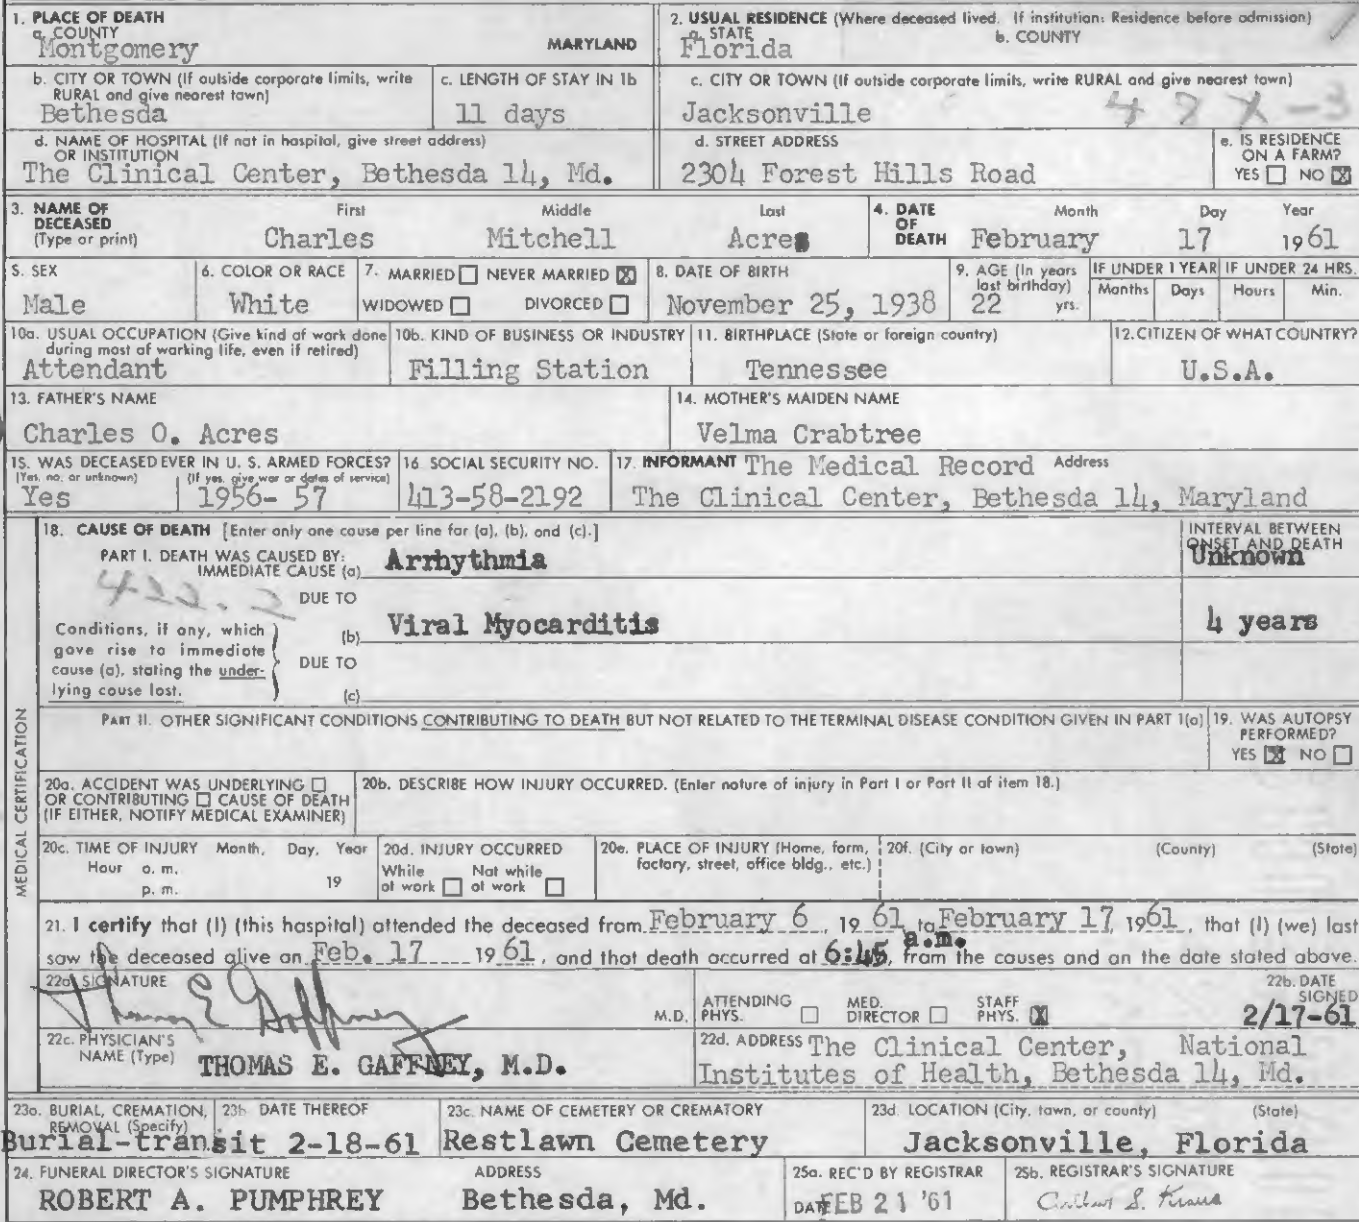 1. PLACE OF DEATH
a. COUNTY
Montgomery MARYLAND
2. USUAL RESIDENCE (Where deceased lived. If institution: Residence before admission)
a. STATE b. COUNTY
Florida
b. CITY OR TOWN (If outside corporate limits, write RURAL and give nearest town)
Bethesda
c. LENGTH OF STAY IN 1b
11 days
c. CITY OR TOWN (If outside corporate limits, write RURAL and give nearest town)
Jacksonville
d. NAME OF HOSPITAL (If not in hospital, give street address)
OR INSTITUTION
The Clinical Center, Bethesda 14, Md.
d. STREET ADDRESS
2304 Forest Hills Road
e. IS RESIDENCE
ON A FARM?
YES ☐ NO ☒
3. NAME OF
DECEASED
(Type or print)
First Middle Last
Charles Mitchell Acres
4. DATE
OF
DEATH
Month Day Year
February 17 1961
5. SEX
Male
6. COLOR OR RACE
White
7. MARRIED ☐ NEVER MARRIED ☒
WIDOWED ☐ DIVORCED ☐
8. DATE OF BIRTH
November 25, 1938
9. AGE (In years
last birthday)
22 yrs.
IF UNDER 1 YEAR
Months Days
IF UNDER 24 HRS.
Hours Min.
10a. USUAL OCCUPATION (Give kind of work done
during most of working life, even if retired)
Attendant
10b. KIND OF BUSINESS OR INDUSTRY
Filling Station
11. BIRTHPLACE (State or foreign country)
Tennessee
12. CITIZEN OF WHAT COUNTRY?
U.S.A.
13. FATHER'S NAME
Charles O. Acres
14. MOTHER'S MAIDEN NAME
Velma Crabtree
15. WAS DECEASED EVER IN U. S. ARMED FORCES?
(Yes, no, or unknown) (If yes, give war or dates of service)
Yes 1956- 57
16. SOCIAL SECURITY NO.
413-58-2192
17. INFORMANT The Medical Record Address
The Clinical Center, Bethesda 14, Maryland
MEDICAL CERTIFICATION
18. CAUSE OF DEATH [Enter only one cause per line for (a), (b), and (c).]
INTERVAL BETWEEN
ONSET AND DEATH
PART I. DEATH WAS CAUSED BY:
IMMEDIATE CAUSE (a) Arrhythmia Unknown
422.2
DUE TO
(b) Viral Myocarditis 4 years
Conditions, if any, which
gave rise to immediate
cause (a), stating the under-
lying cause last.
DUE TO
(c)
PART II. OTHER SIGNIFICANT CONDITIONS CONTRIBUTING TO DEATH BUT NOT RELATED TO THE TERMINAL DISEASE CONDITION GIVEN IN PART I(a)
19. WAS AUTOPSY
PERFORMED?
YES ☒ NO ☐
20a. ACCIDENT WAS UNDERLYING ☐
OR CONTRIBUTING ☐ CAUSE OF DEATH
(IF EITHER, NOTIFY MEDICAL EXAMINER)
20b. DESCRIBE HOW INJURY OCCURRED. (Enter nature of injury in Part I or Part II of item 18.)
20c. TIME OF INJURY Month, Day, Year
Hour a. m.
p. m. 19
20d. INJURY OCCURRED
While Not while
at work ☐ at work ☐
20e. PLACE OF INJURY (Home, farm,
factory, street, office bldg., etc.)
20f. (City or town) (County) (State)
21. I certify that (I) (this hospital) attended the deceased from February 6, 19 61 to February 17, 1961, that (I) (we) last
saw the deceased alive on Feb. 17 19 61, and that death occurred at 6:45 a.m. from the causes and on the date stated above.
22a. SIGNATURE
Thomas E Gaffney M.D.
ATTENDING
PHYS. ☐
MED.
DIRECTOR ☐
STAFF
PHYS. ☒
22b. DATE
SIGNED
2/17-61
22c. PHYSICIAN'S
NAME (Type) THOMAS E. GAFFNEY, M.D.
22d. ADDRESS The Clinical Center, National
Institutes of Health, Bethesda 14, Md.
23a. BURIAL, CREMATION,
REMOVAL (Specify)
Burial-transit
23b. DATE THEREOF
2-18-61
23c. NAME OF CEMETERY OR CREMATORY
Restlawn Cemetery
23d. LOCATION (City, town, or county) (State)
Jacksonville, Florida
24. FUNERAL DIRECTOR'S SIGNATURE ADDRESS
ROBERT A. PUMPHREY Bethesda, Md.
25a. REC'D BY REGISTRAR
DATE FEB 21 '61
25b. REGISTRAR'S SIGNATURE
S. Kraus